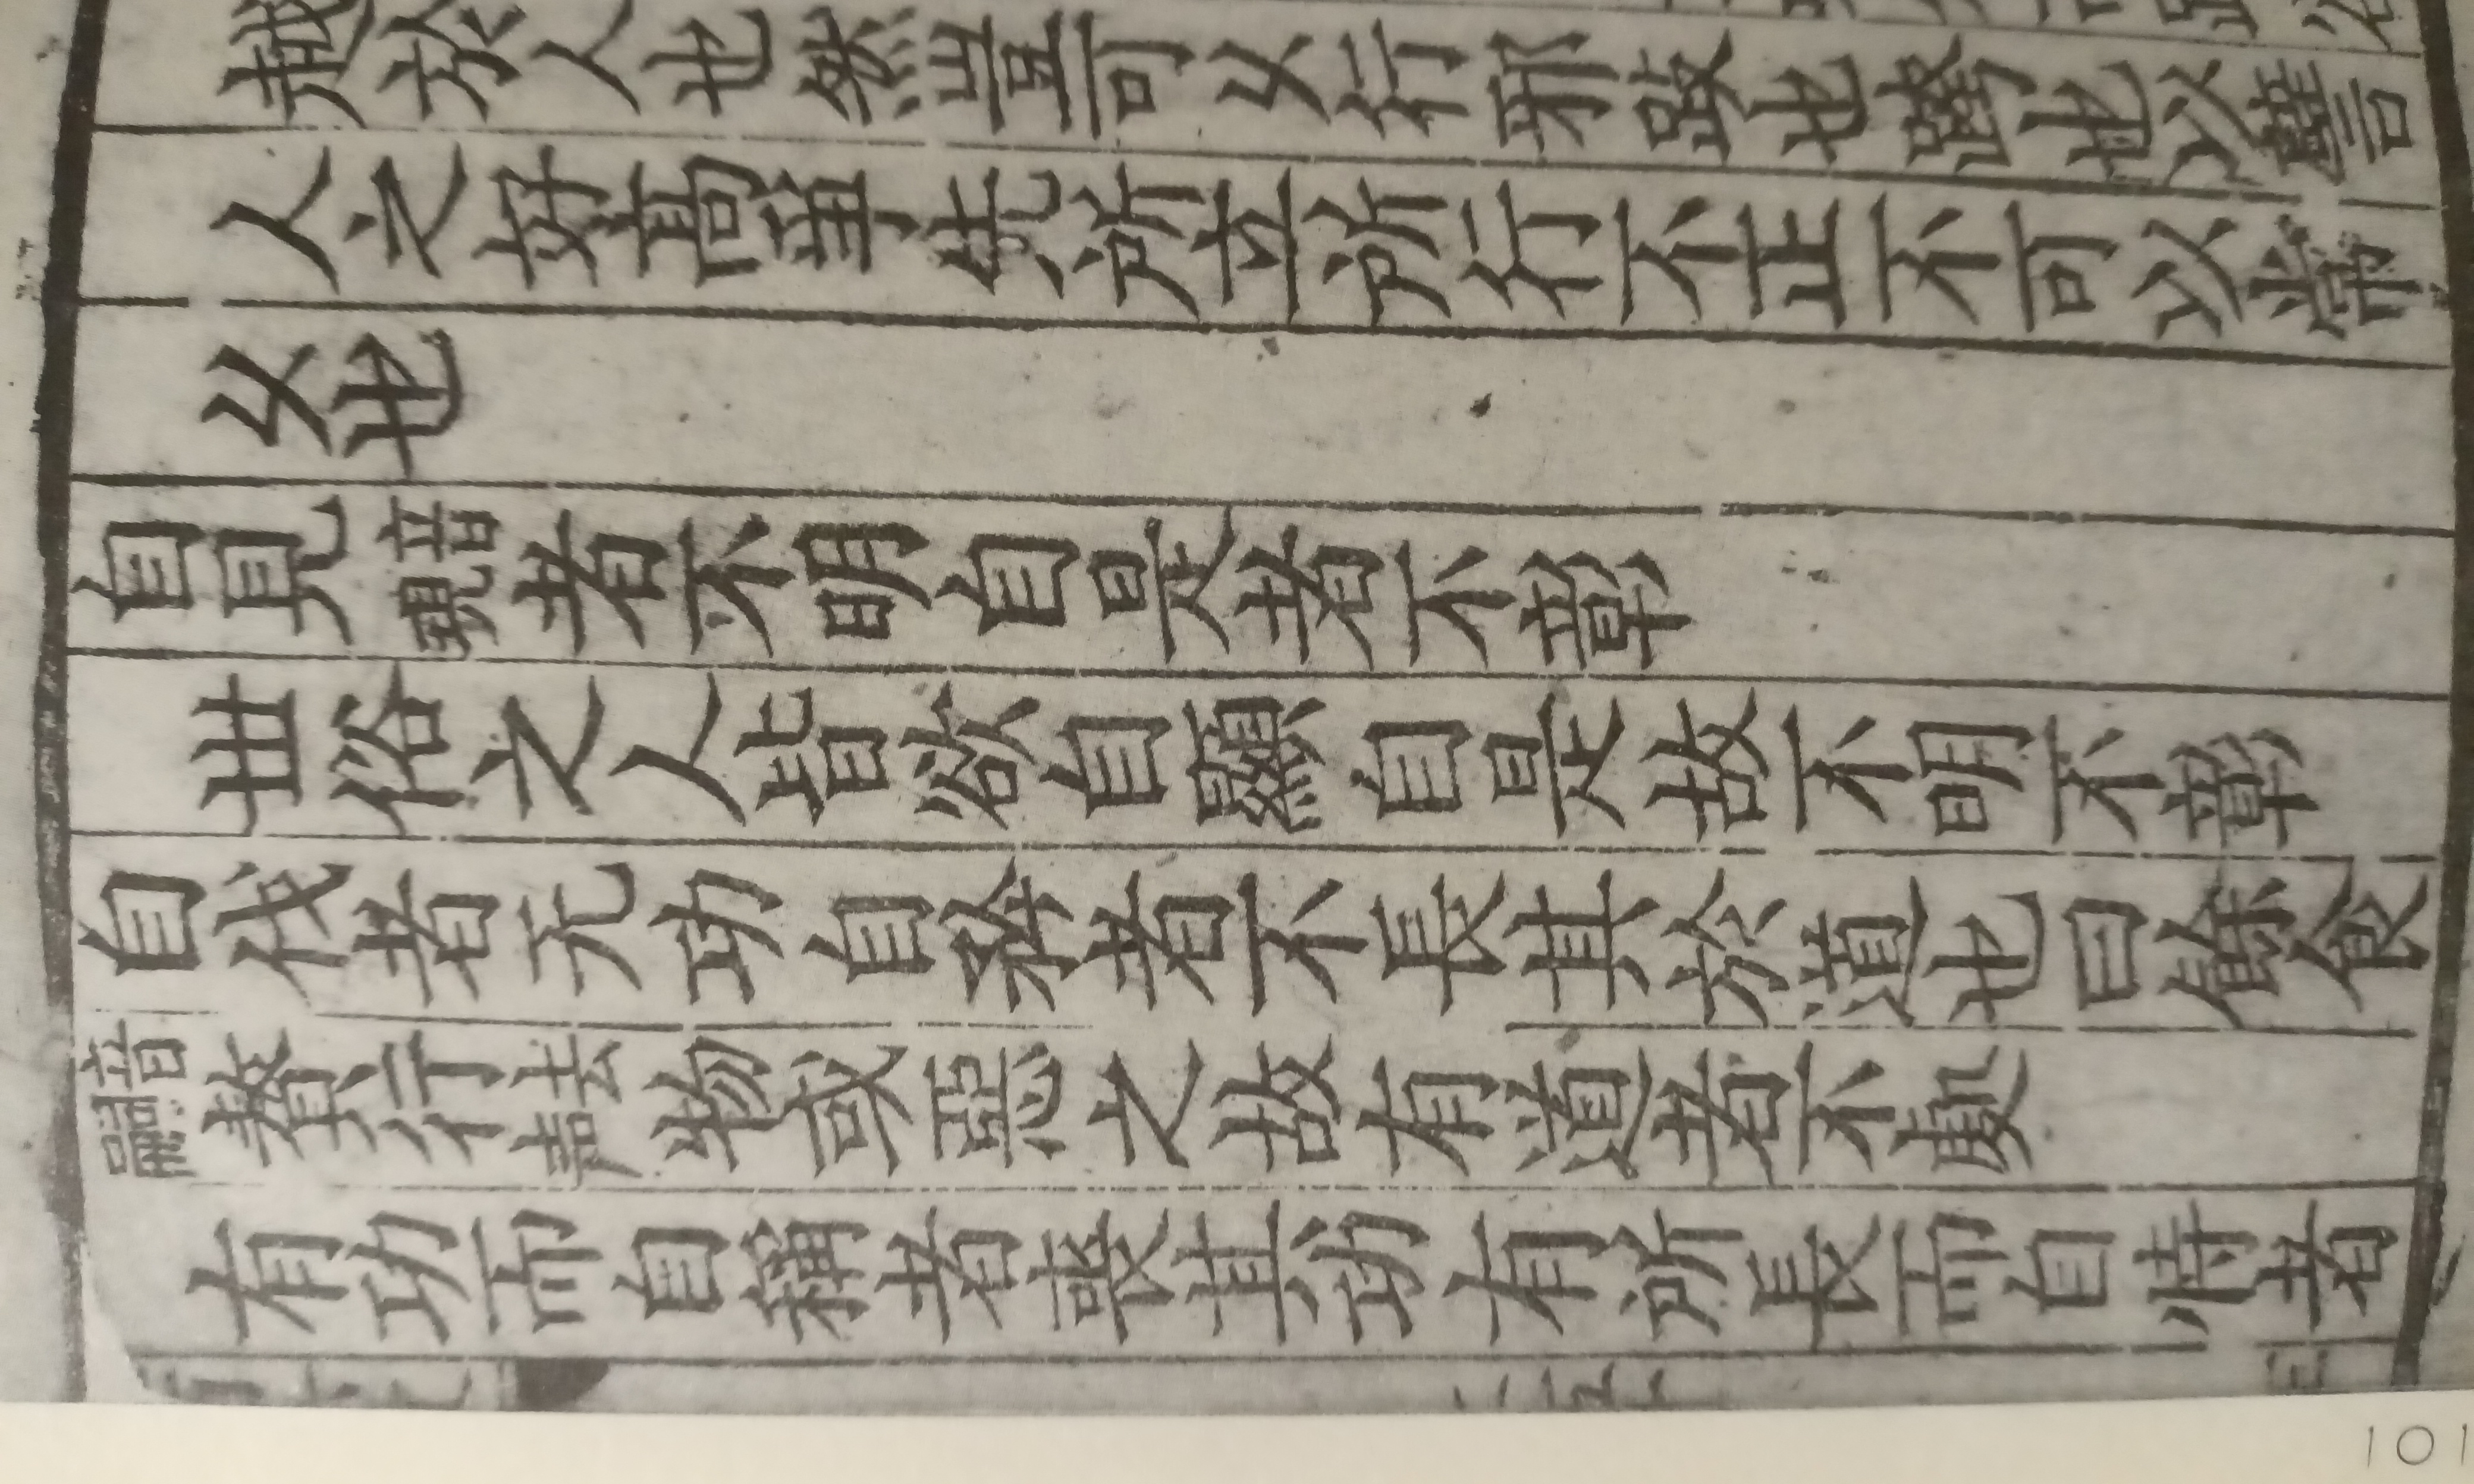 越於人也然豈可乆行邪跂也跨也以譬
人之好高爭先所立所行不正不可以常
乆也
自見音現者不明自是者不彰
世俗之人皆欲自顯自是故不明不彰
自伐者无功自矜者不長其於道也曰餘食
音嗣贅行去聲物或惡之故有道者不處
有功而自稱者喪其功有所長而自恃者
101